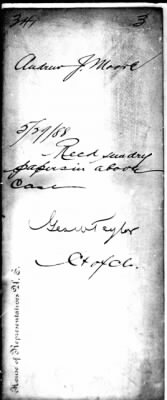 344 3
Andrew J. Moore
5/29/88
Recd sundry
papers in above
Case
Geo W Taylor
Ct of Cl.
House of Representatives U. S.